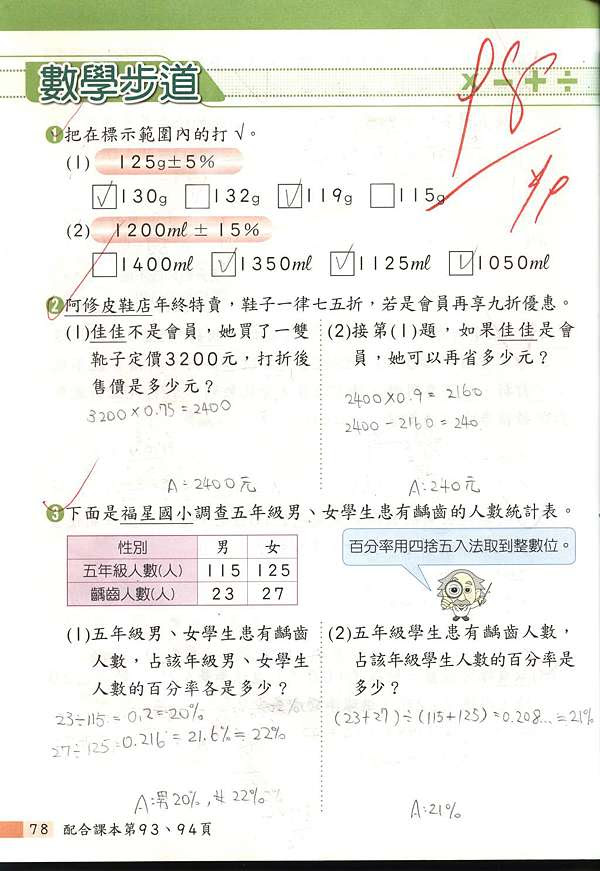 數學步道
× − + ÷
1 把在標示範圍內的打 √。
(1) 125g±5%
√ 130g 132g √ 119g 115g
(2) 1200ml ± 15%
1400ml √ 1350ml √ 1125ml √ 1050ml
2 阿修皮鞋店年終特賣,鞋子一律七五折,若是會員再享九折優惠。
(1)佳佳不是會員,她買了一雙
靴子定價3200元,打折後
售價是多少元?
3200×0.75=2400
A=2400元
(2)接第(1)題,如果佳佳是會
員,她可以再省多少元?
2400×0.9=2160
2400−2160=240
A:240元
3 下面是福星國小調查五年級男、女學生患有齲齒的人數統計表。
性別 男 女
五年級人數(人) 115 125
齲齒人數(人) 23 27
百分率用四捨五入法取到整數位。
(1)五年級男、女學生患有齲齒
人數,占該年級男、女學生
人數的百分率各是多少?
23÷115=0.2=20%
27÷125=0.216=21.6%=22%
A:男20%,女22%
(2)五年級學生患有齲齒人數,
占該年級學生人數的百分率是
多少?
(23+27)÷(115+125)=0.208...=21%
A:21%
78 配合課本第93、94頁